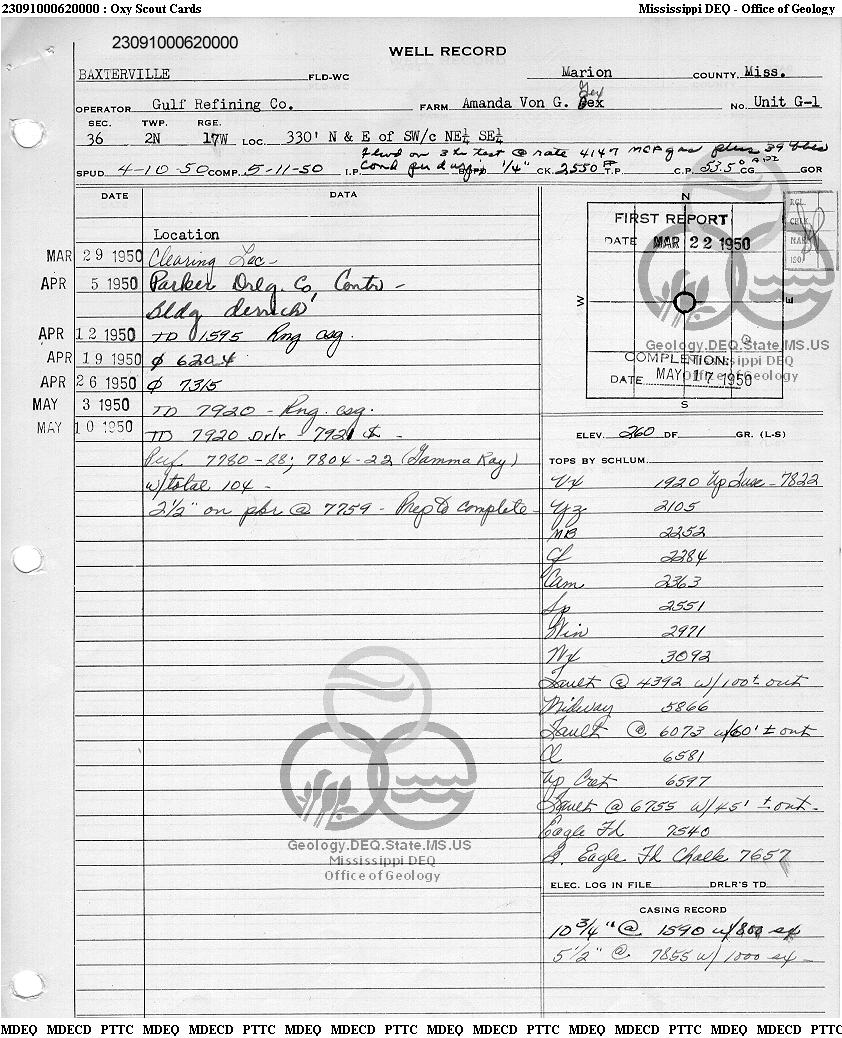 23091000620000 : Oxy Scout Cards Mississippi DEQ - Office of Geology
23091000620000
WELL RECORD
BAXTERVILLE FLD-WC Marion COUNTY, Miss.
Gex
OPERATOR Gulf Refining Co. FARM Amanda Von G. Gex No. Unit G-1
SEC. TWP. RGE.
36 2N 17W LOC. 330' N & E of SW/c NE¼ SE¼
Flwd on 3 hr test @ rate 4147 MCF gas plus 39 bbls
SPUD 4-10-50 COMP. 5-11-50 I.P. Cond per day BOPD 1/4" CK. 2550 T.P. C.P. 53.5° API CG. GOR
DATE DATA
Location
MAR 29 1950 Clearing Loc -
APR 5 1950 Parker Drlg. Co, Contr -
Bldg derrick
APR 12 1950 TD 1595 Rng csg.
APR 19 1950 ϕ 6204
APR 26 1950 ϕ 7315
MAY 3 1950 TD 7920 - Rng. csg.
MAY 10 1950 TD 7920 Drlr - 7921
Perf 7780-88; 7804-22 (Gamma Ray)
w/total 104 -
2 1/2" on pkr @ 7759 - Prep to complete -
N
FIRST REPORT
DATE MAR 22 1950
W E
COMPLETION:
DATE MAY 17 1950
S
Geology.DEQ.State.MS.US
Mississippi DEQ
Office of Geology
ELEV. 260 DF GR. (L-S)
TOPS BY SCHLUM.
Vx 1920 Up Tusc - 7822
Yz 2105
MB 2252
Gf 2284
Cam 2363
Sp 2551
Win 2971
Wx 3092
Fault @ 4392 w/100± out
Midway 5866
Fault @ 6073 w/60' ± out
Cl 6581
Up Cret 6597
Fault @ 6755 w/45' ± out -
Eagle Fd 7540
L. Eagle Fd Chalk 7657
ELEC. LOG IN FILE DRLR'S TD
CASING RECORD
10 3/4" @ 1590 w/800 sx
5 1/2" @ 7855 w/1000 sx -
Geology.DEQ.State.MS.US
Mississippi DEQ
Office of Geology
MDEQ MDECD PTTC MDEQ MDECD PTTC MDEQ MDECD PTTC MDEQ MDECD PTTC MDEQ MDECD PTTC MDEQ MDECD PTTC